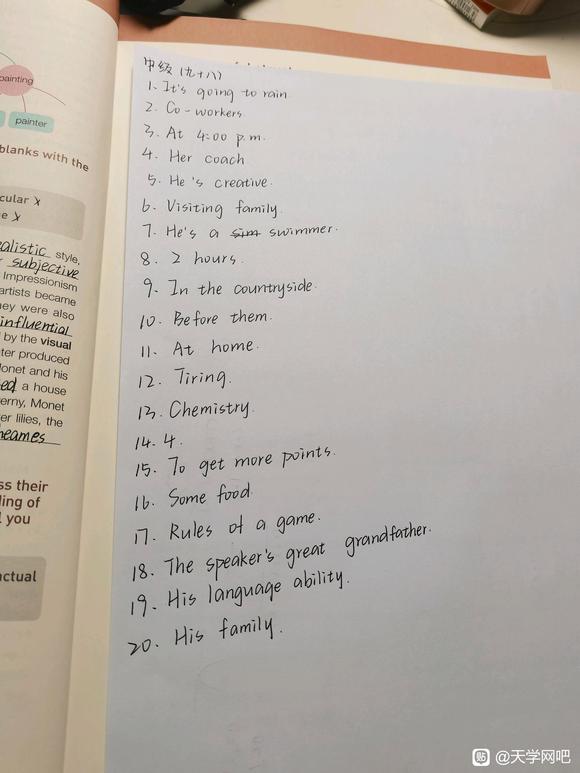 painting
painter
blanks with the
cular x
e x
ealistic style,
subjective
Impressionism
artists became
ney were also
influential
d by the visual
ter produced
Monet and his
ed a house
erny, Monet
er lilies, the
heames
ss their
ding of
l you
actual
中级（九十八）
1. It's going to rain.
2. Co-workers.
3. At 4:00 p.m.
4. Her coach
5. He's creative.
6. Visiting family.
7. He's a swimmer.
8. 2 hours.
9. In the countryside.
10. Before them.
11. At home.
12. Tiring.
13. Chemistry.
14. 4.
15. To get more points.
16. Some food.
17. Rules of a game.
18. The speaker's great grandfather.
19. His language ability.
20. His family.
贴 @天学网吧